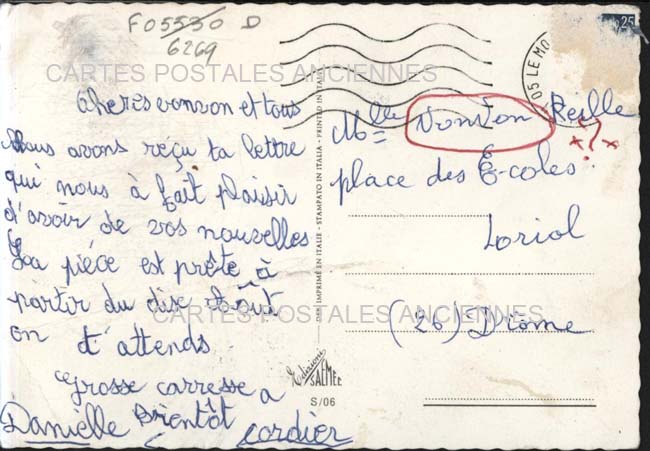 F05530 D
6269
CARTES POSTALES ANCIENNES
cheres vonvon et tous
Nous avons reçu ta lettre
qui nous à fait plaisir
d'avoir de vos nouvelles
La piéce est prête à
partir du dix Août
on t'attends
grosse carresse a
Bientôt
Danielle cordier
DAS IMPRIMÉ EN ITALIE - STAMPATO IN ITALIA - PRINTED IN ITALY
Edizioni
SAEMEC
S/06
05 LE MO
25
Mlle VonVon Reille
x?x
place des Écoles
Loriol
CARTES POSTALES ANCIENNES
(26) Drôme